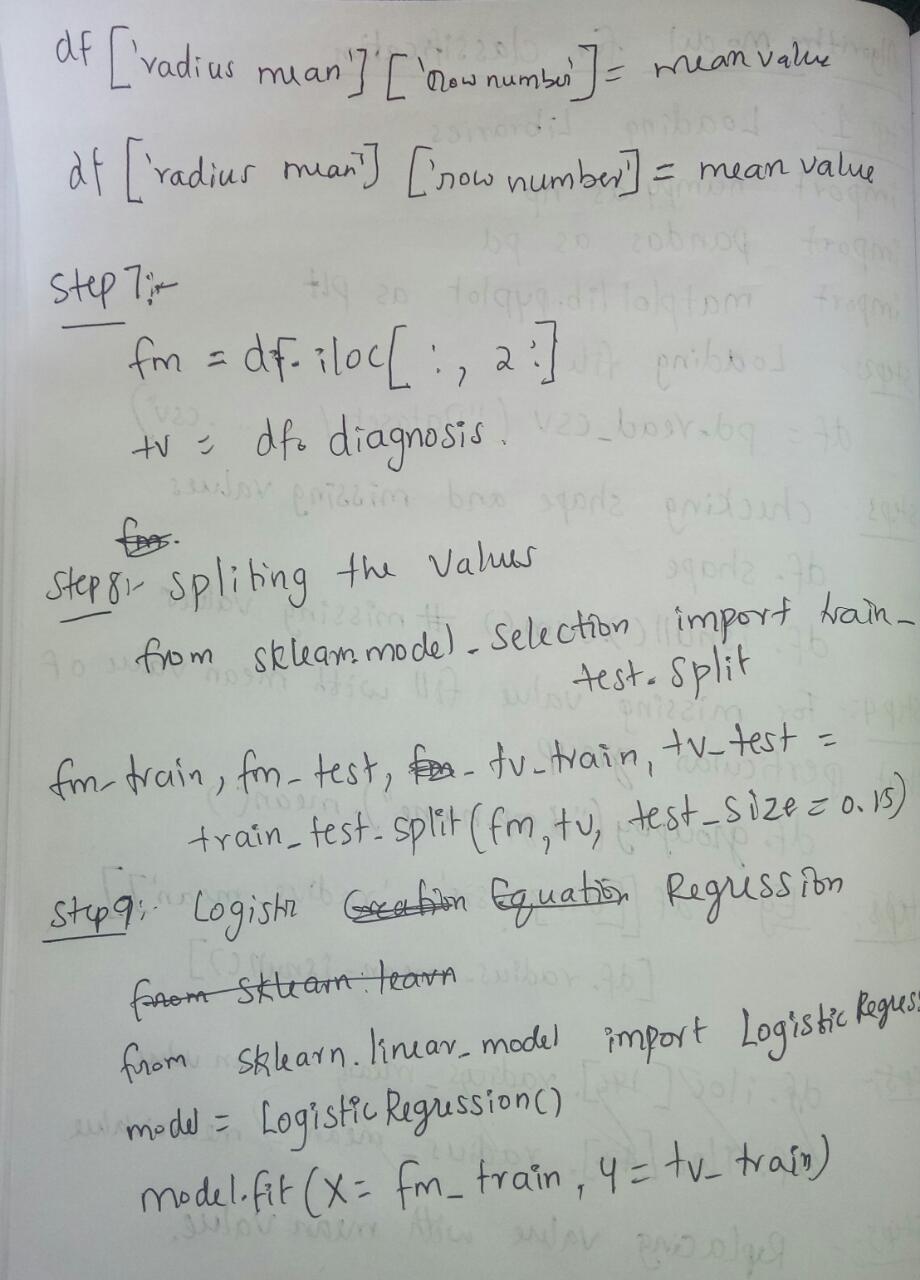 df ['radius mean']['row number'] = mean value
df ['radius mean'] ['row number'] = mean value
Step 7:-
fm = df.iloc[:, 2:]
tv = df. diagnosis.
fm.
Step 8:- Spliting the values
from sklearn.model_selection import train_
test_split
fm_train, fm_test, fm_ tv_train, tv_test =
train_test_split(fm, tv, test_size = 0.15)
Step 9:- Logistic Creation Equation Regression
from sklearn.learn
from sklearn.linear_model import Logistic Regres
model = Logistic Regression()
model.fit (X = fm_train, y = tv_train)